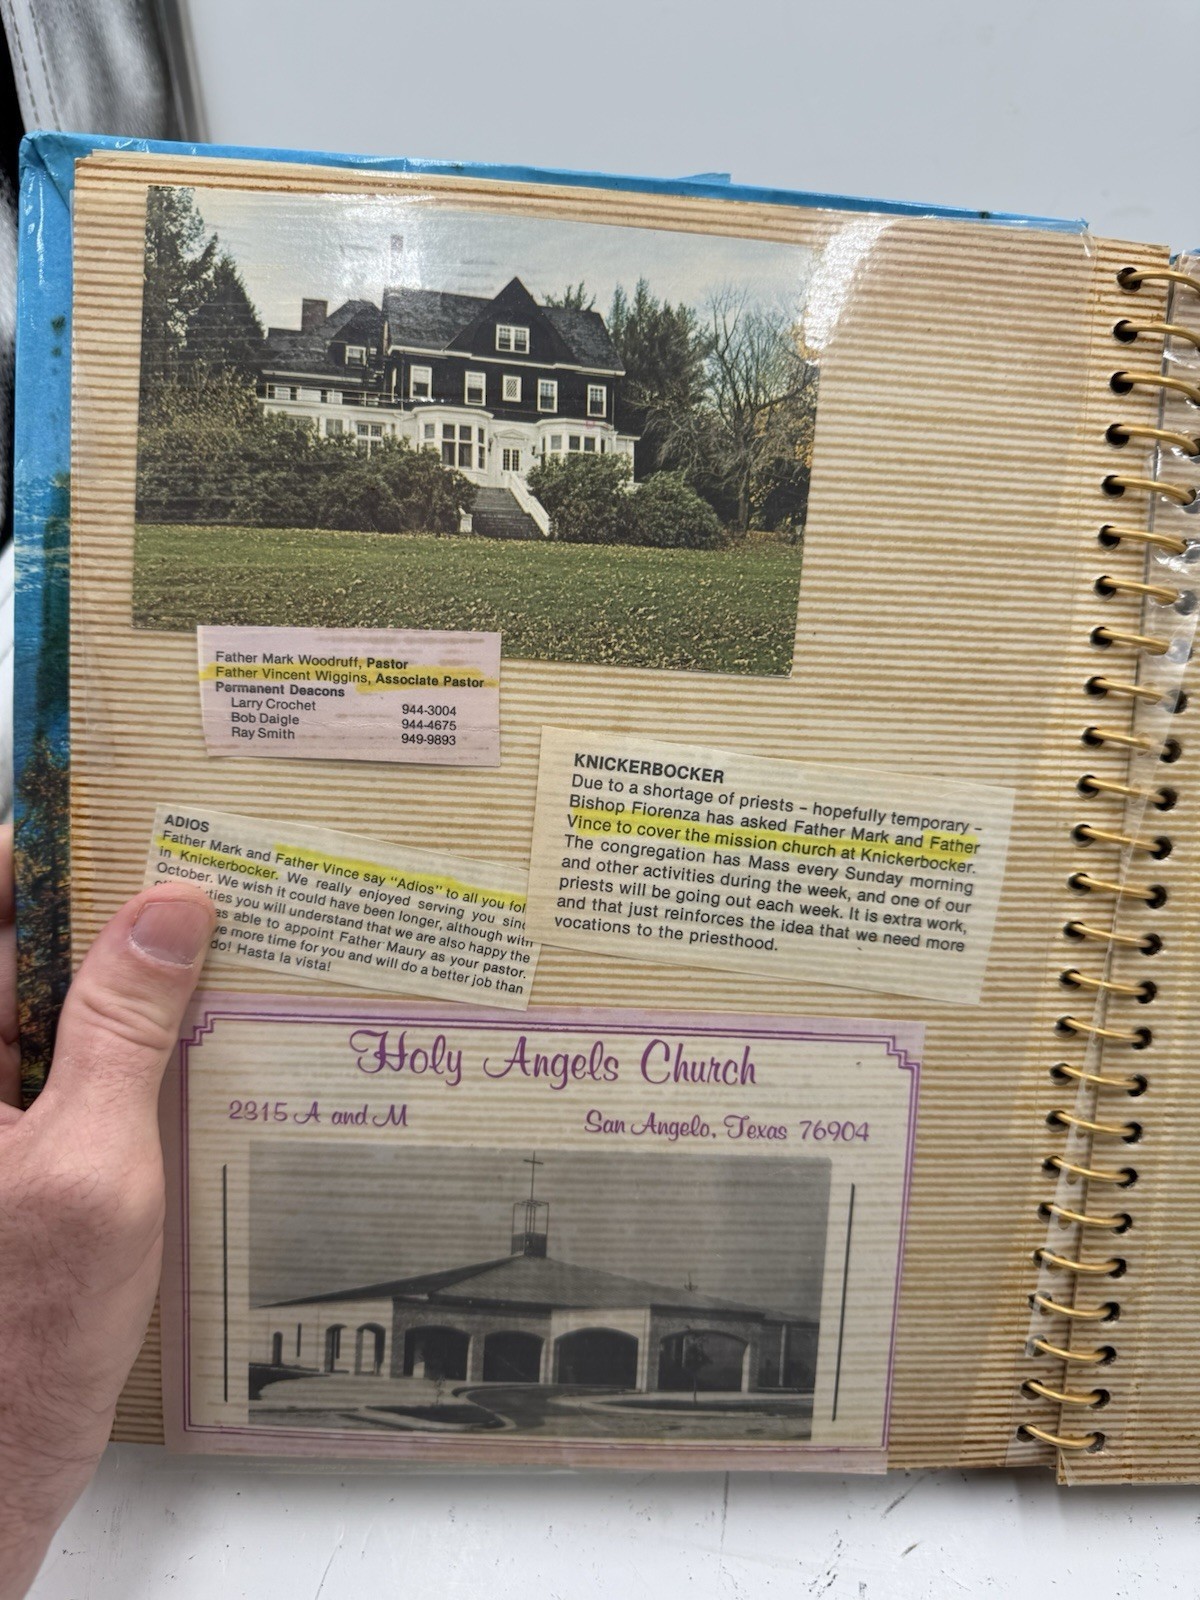 Father Mark Woodruff, Pastor
Father Vincent Wiggins, Associate Pastor
Permanent Deacons
Larry Crochet 944-3004
Bob Daigle 944-4675
Ray Smith 949-9893
KNICKERBOCKER
Due to a shortage of priests – hopefully temporary –
Bishop Fiorenza has asked Father Mark and Father
Vince to cover the mission church at Knickerbocker.
The congregation has Mass every Sunday morning
and other activities during the week, and one of our
priests will be going out each week. It is extra work,
and that just reinforces the idea that we need more
vocations to the priesthood.
ADIOS
Father Mark and Father Vince say "Adios" to all you fol
in Knickerbocker. We really enjoyed serving you sinc
October. We wish it could have been longer, although with
ties you will understand that we are also happy the
as able to appoint Father Maury as your pastor.
ve more time for you and will do a better job than
do! Hasta la vista!
Holy Angels Church
2315 A and M San Angelo, Texas 76904